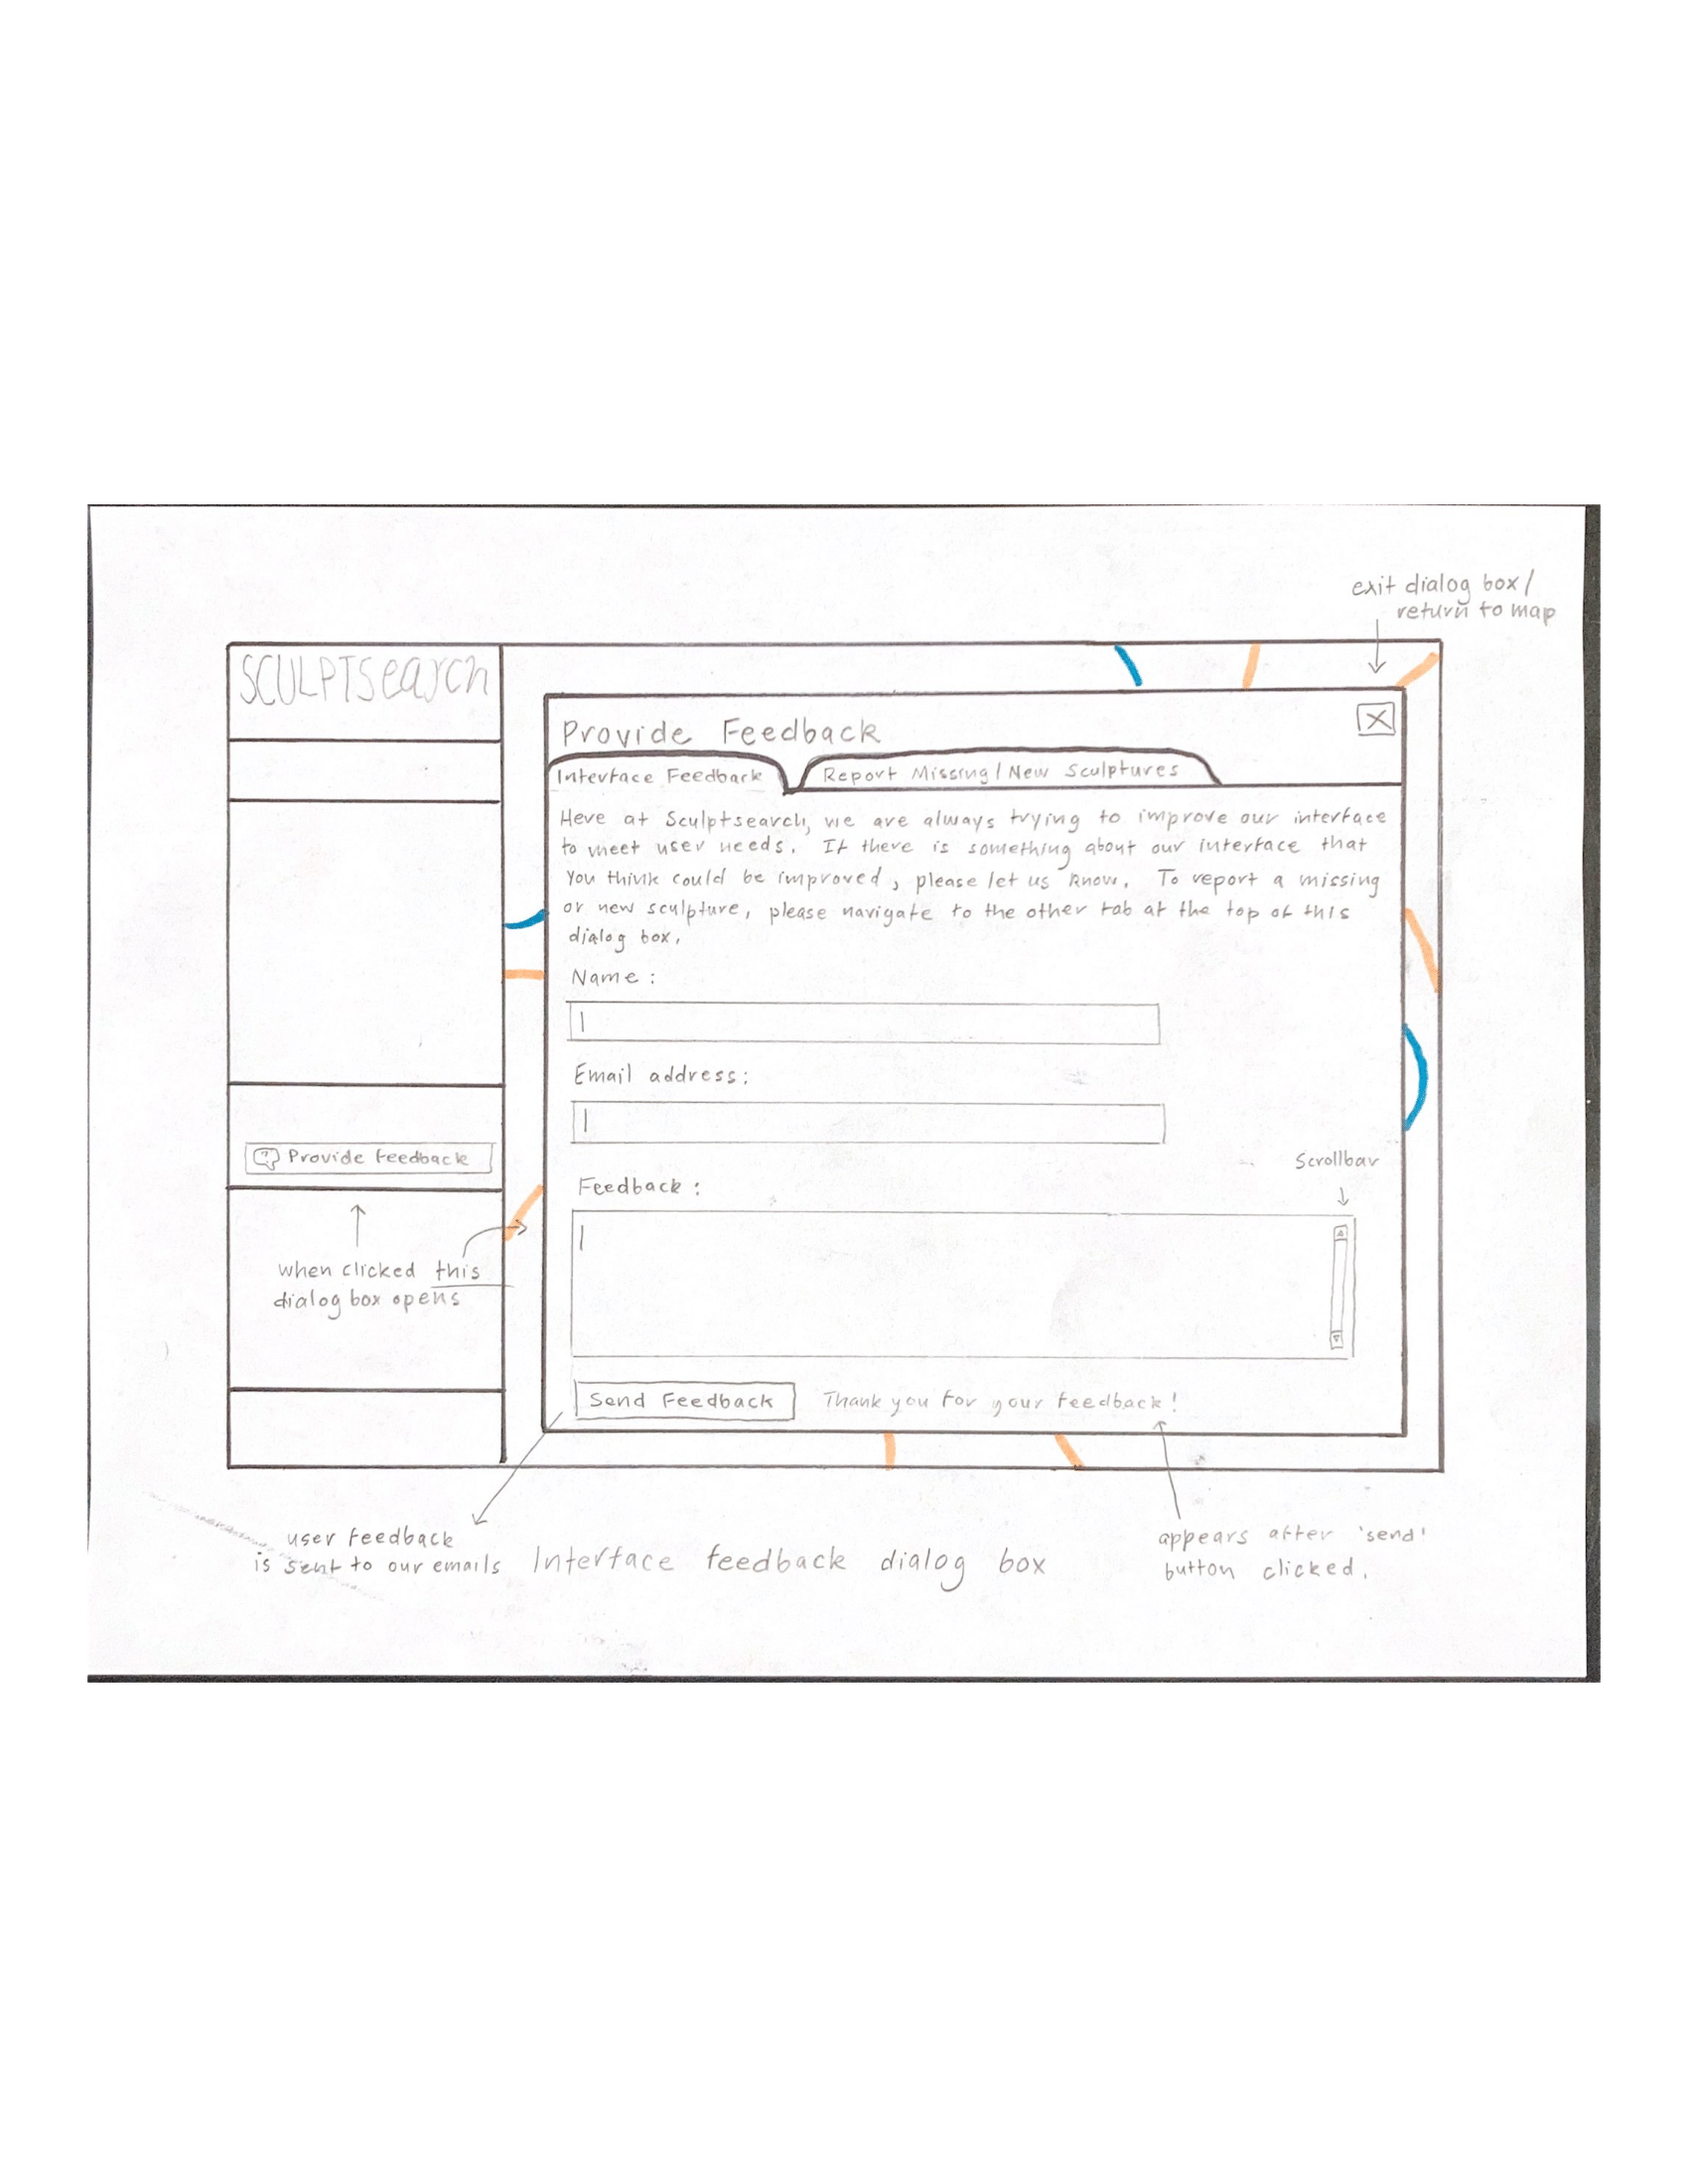 exit dialog box/
return to map
SCULPTSearch
Provide Feedback
Interface Feedback
Report Missing/New Sculptures
Here at Sculptsearch, we are always trying to improve our interface
to meet user needs. If there is something about our interface that
you think could be improved, please let us know. To report a missing
or new sculpture, please navigate to the other tab at the top of this
dialog box.
Name:
Email address:
Provide feedback
Scrollbar
Feedback:
when clicked this
dialog box opens
Send Feedback
Thank you for your feedback!
user feedback
is sent to our emails
Interface feedback dialog box
appears after 'send'
button clicked.